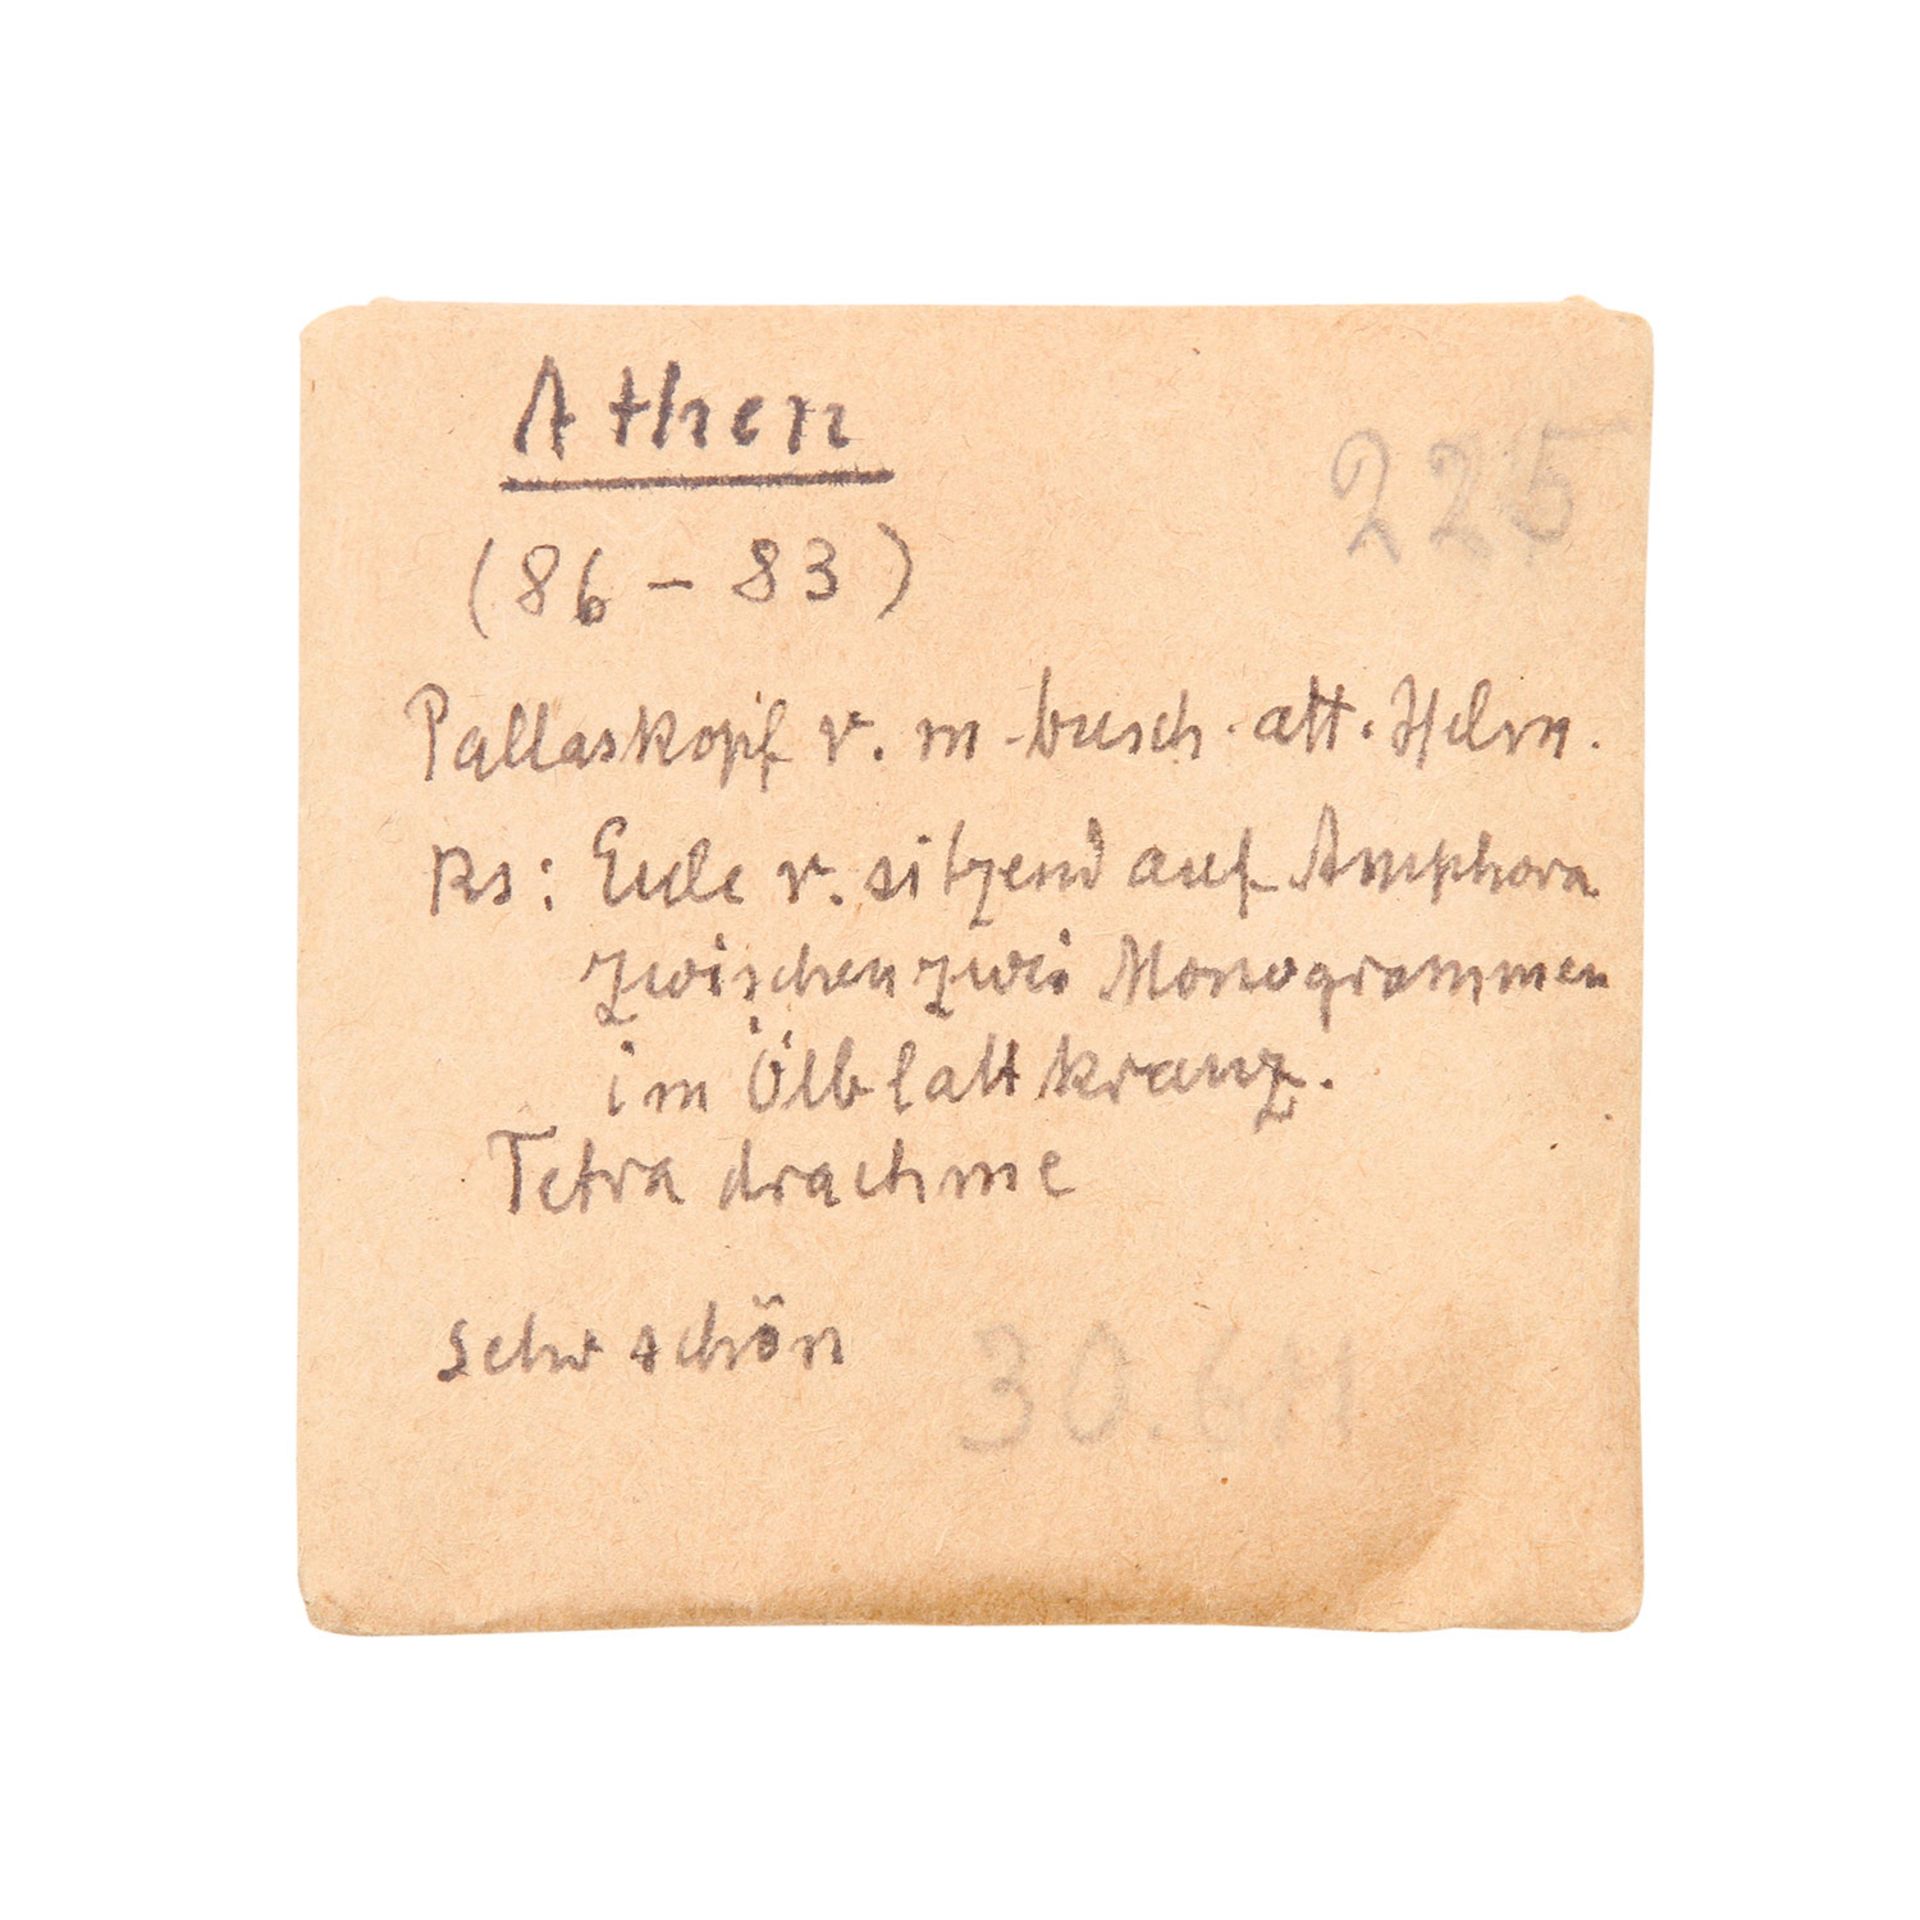 Athen
225
(86 - 83)
Pallaskopf r. m. busch. att. Helm.
Rs: Eule r. sitzend auf Amphora
zwischen zwei Monogrammen
im Ölblattkranz.
Tetradrachme
sehr schön
30.